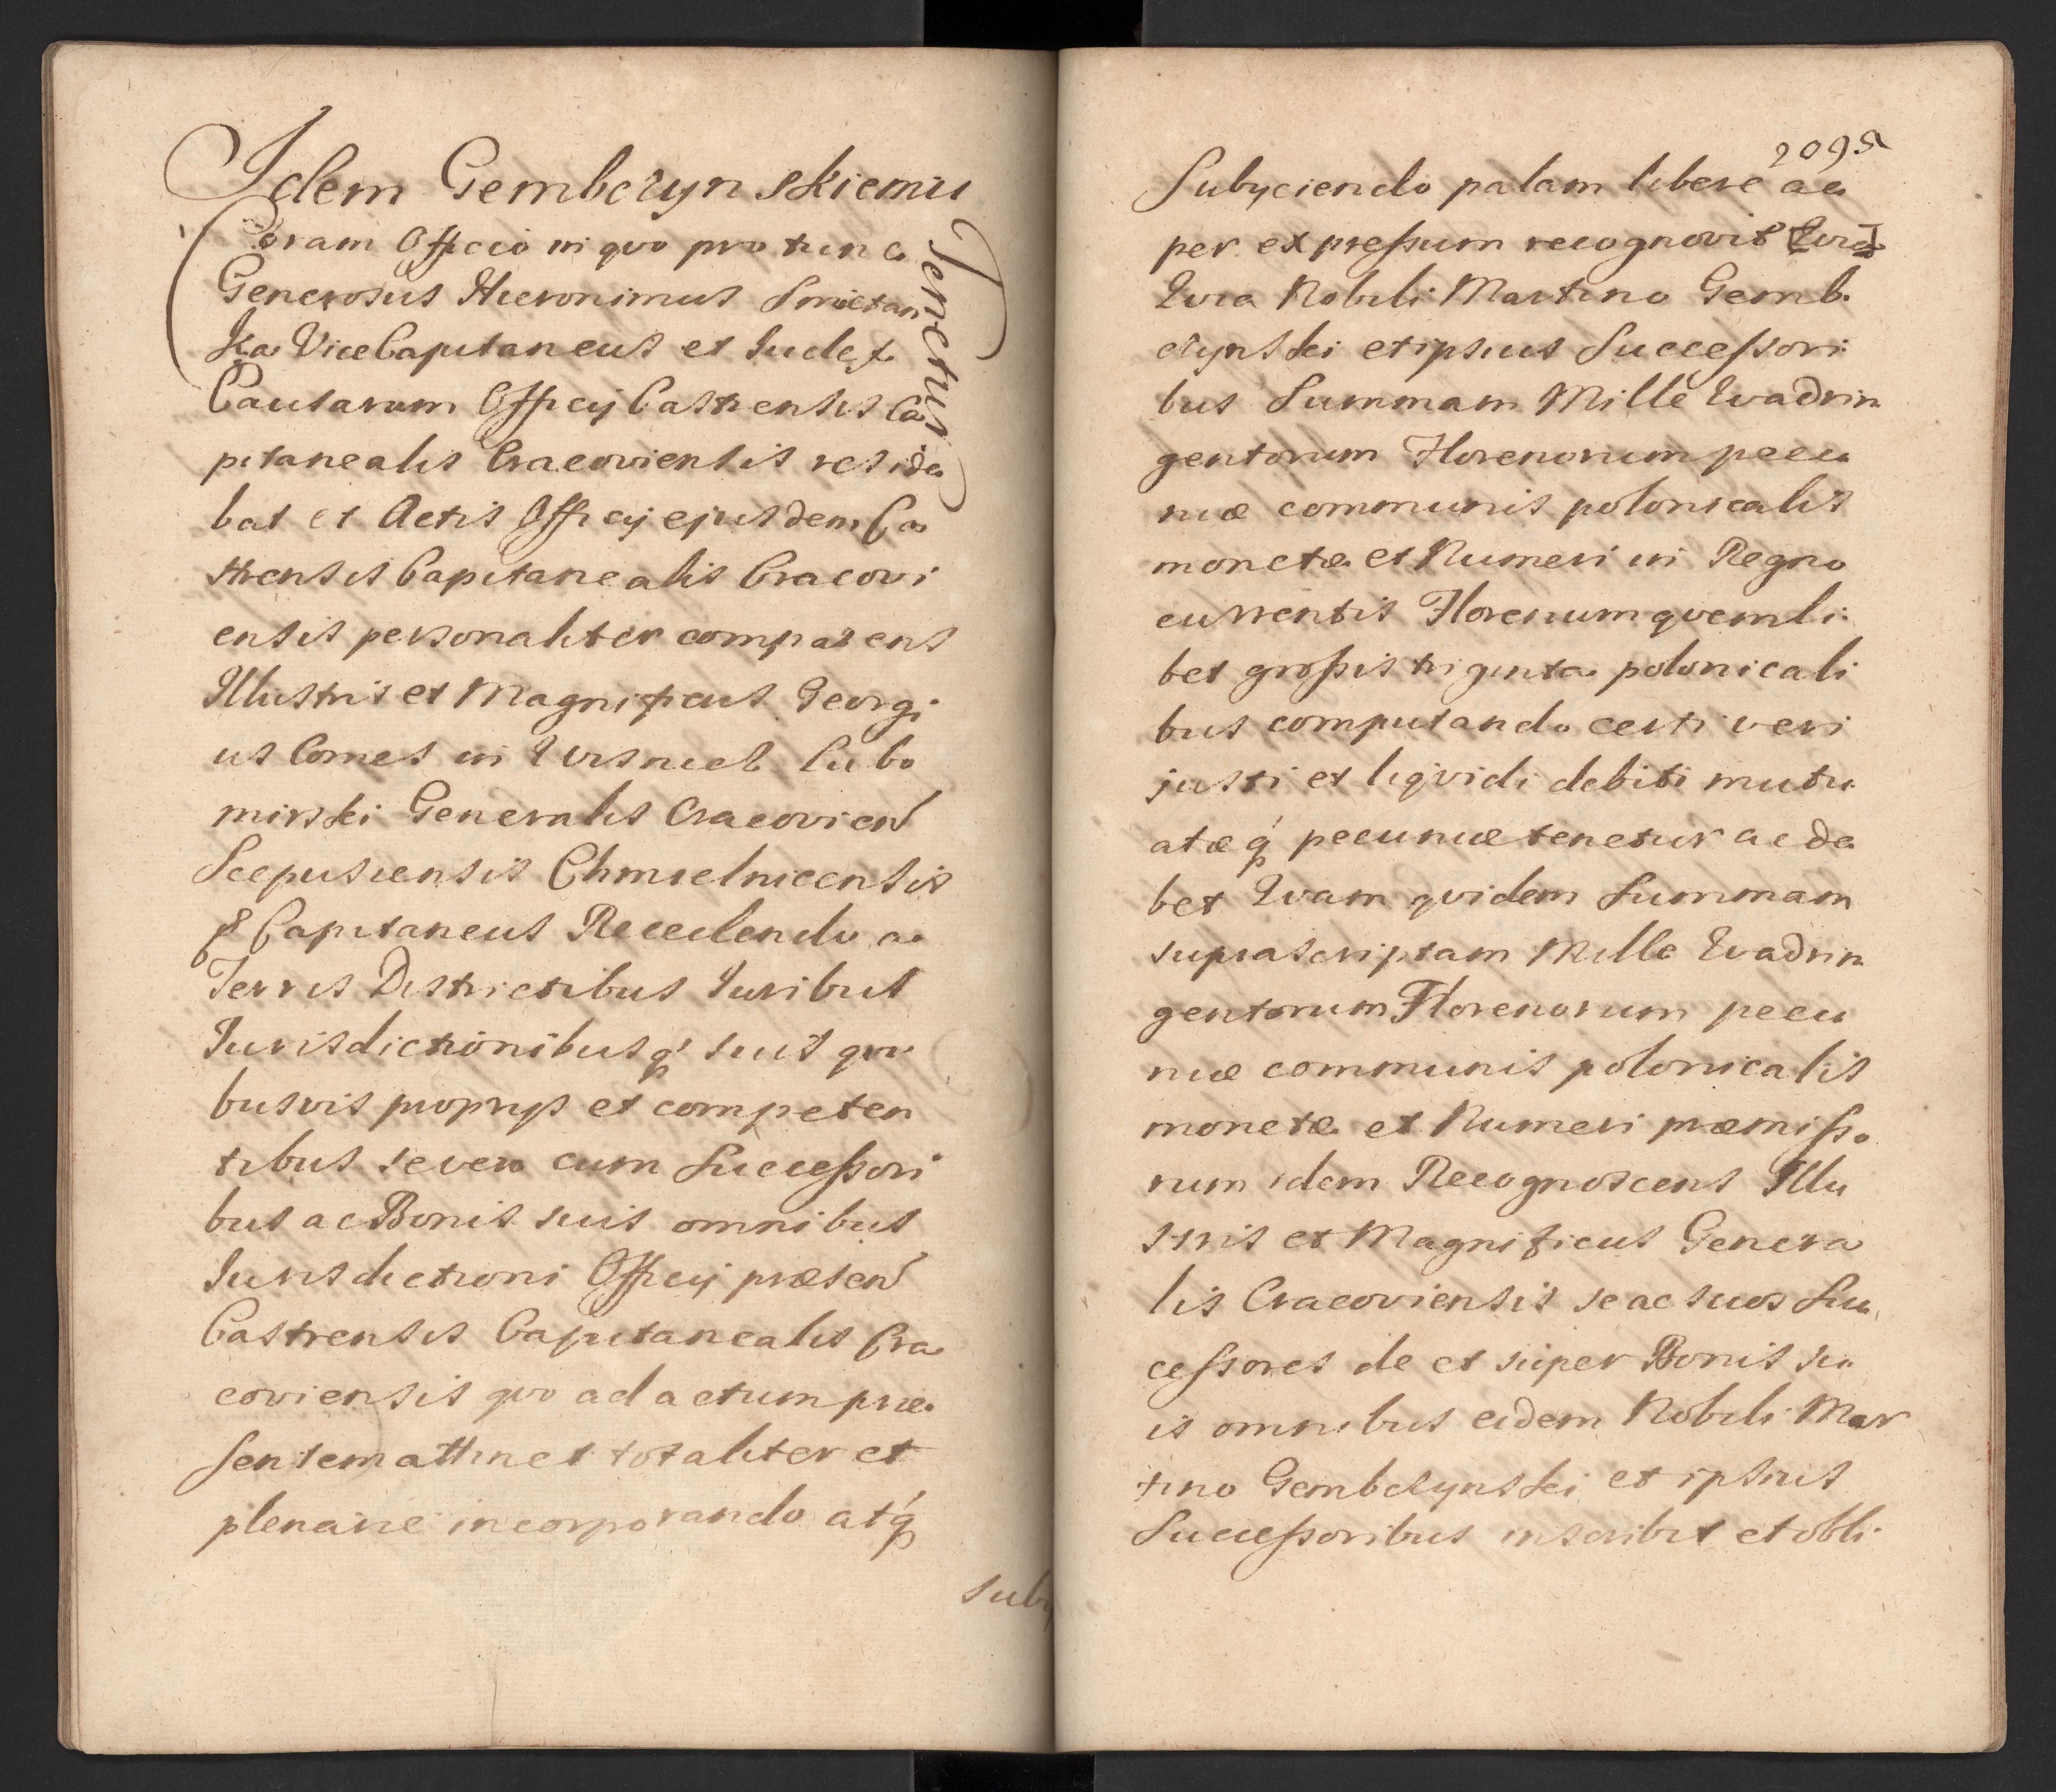 Idem Gembczynskiemu
Tenetur
Coram Officio in quo pro tunc
Generosus Hieronimus Smietan
ka ViceCapitaneus et Iudex
Causarum Officij Castrensis Ca
pitanealis Cracoviensis reside
bat et Actis Officij ejusdem Ca
strensis Capitanealis Cracovi
ensis personaliter comparens
Illustris et Magnificus Georgi
us Comes in Wisnicz Lubo
mirski Generalis Cracovien
Scepusiensis Chmielnicensis
& Capitaneus Recedendo a
Terris Districtibus Iuribus
Iurisdictionibusq' suis qui
busvis proprijs et competen
tibus se vero cum Successori
bus ac Bonis suis omnibus
Iurisdictioni Officij præsen
Castrensis Capitanealis Cra
coviensis quo ad actum præ
sentem attinet totaliter et
plenarie incorporando atq'
suby
209
Subyciendo palam libere ac
per expressum recognovit Quia
Quia Nobili Martino Gemb
czynski et ipsius Successori:
bus Summam Mille Quadrin
gentorum Florenorum pecu
niæ communis polonicalis
monetæ et Numeri in Regno
currentis Florenum quemli:
bet grossis triginta polonicali
bus computando certi veri
justi et liqvidi debiti mutu
atæq' pecuniæ tenetur ac de
bet Quam qvidem Summam
suprascriptam Mille Quadrin
gentorum Florenorum pecu
niæ communis polonicalis
monetæ et Numeri præmisso
rum idem Recognoscens Illu
stris et Magnificus Genera
lis Cracoviensis se ac suos Suc
cessores de et super Bonis su
is omnibus eidem Nobili Mar
tino Gembczynski et ipsius
Successoribus inscribit et obli